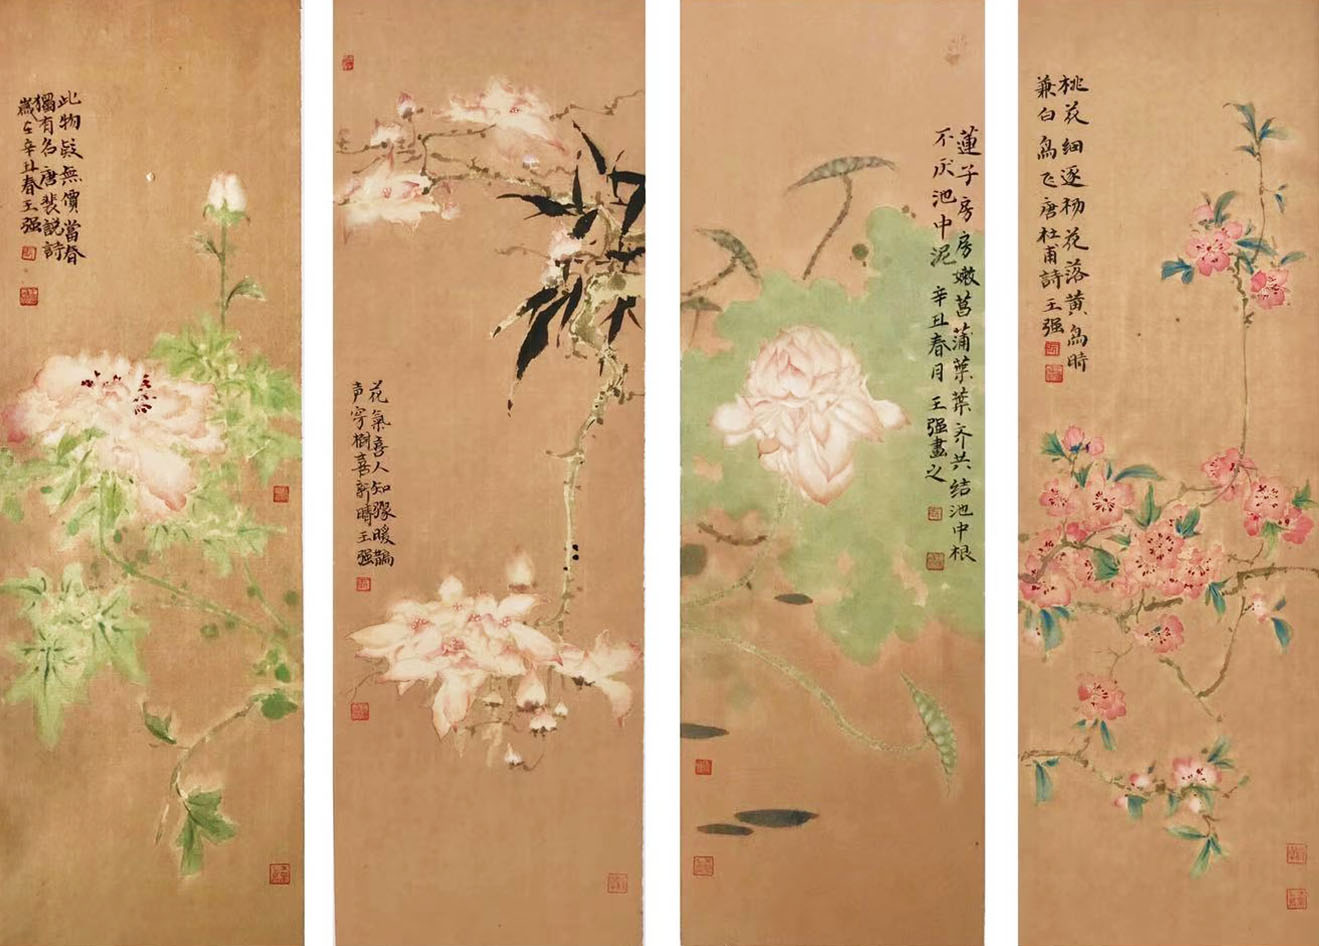 此物疑無價當春
獨有名唐裴説詩
歲在辛丑春王强
花氣喜人知驟暖鵲
声穿樹喜新晴王强
蓮子房房嫩菖蒲葉葉齐共结池中根
不厌池中泥 辛丑春月 王强畫之
桃花细逐杨花落黄鸟時
兼白鸟飞唐杜甫詩王强